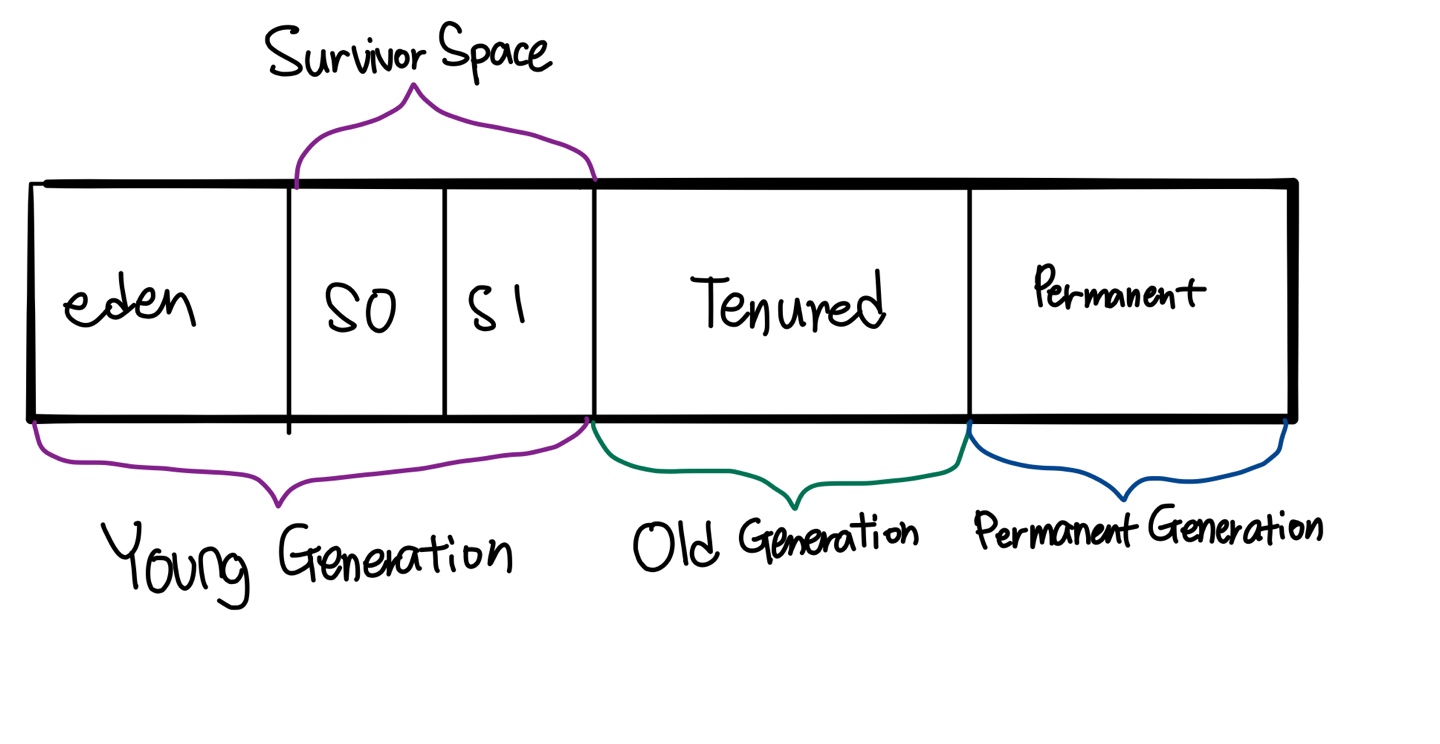 Survivor Space
eden
S0
S1
Tenured
Permanent
Young Generation
Old Generation
Permanent Generation